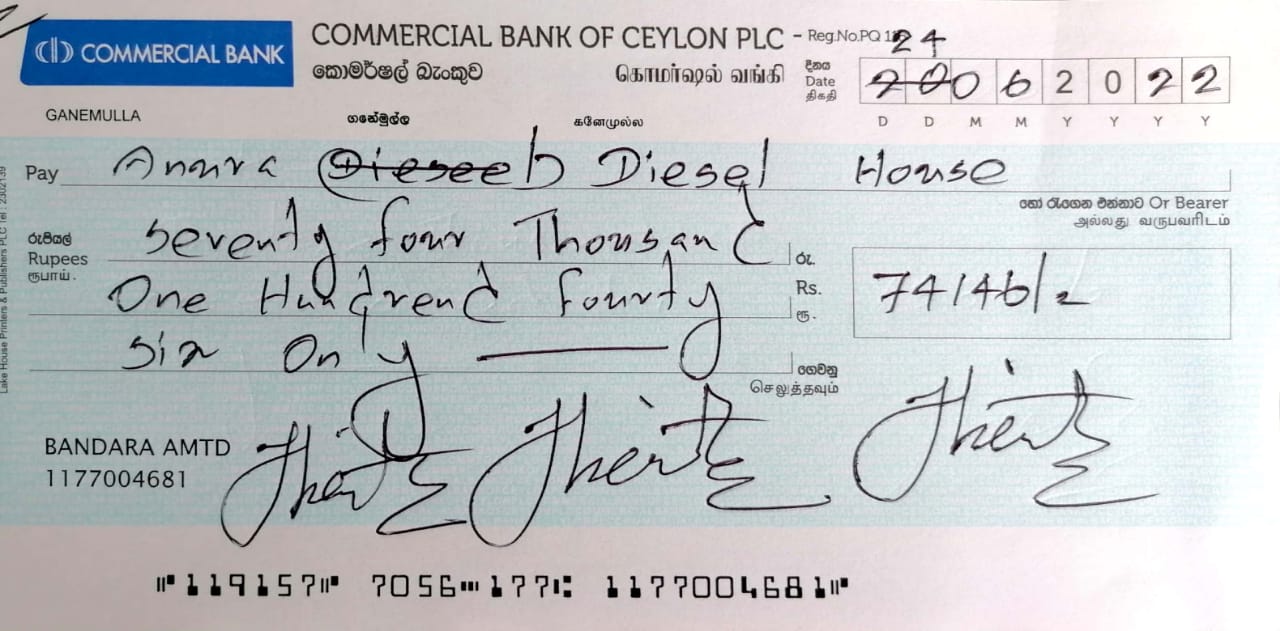 COMMERCIAL BANK
COMMERCIAL BANK OF CEYLON PLC - Reg.No.PQ 1
කොමර්ෂල් බැංකුව கொமர்ஷல் வங்கி
24
දිනය
Date
திகதி
20 0 6 2 0 2 2
D D M M Y Y Y Y
GANEMULLA ගනේමුල්ල கனேமுல்ல
Pay Anura Dieseel Diesel House
හෝ රැගෙන එන්නාට Or Bearer
அல்லது வருபவரிடம்
රුපියල්
Rupees
ரூபாய்.
Seventy four Thousand
රු.
Rs.
ரூ.
74146/2
One Hundrend fourty
six Only
ගෙවනු
செலுத்தவும்
BANDARA AMTD
1177004681
Lake House Printers & Publishers PLC Tel : 2302139
⑈119157⑈ 7056⑉177⑆ 1177004681⑈